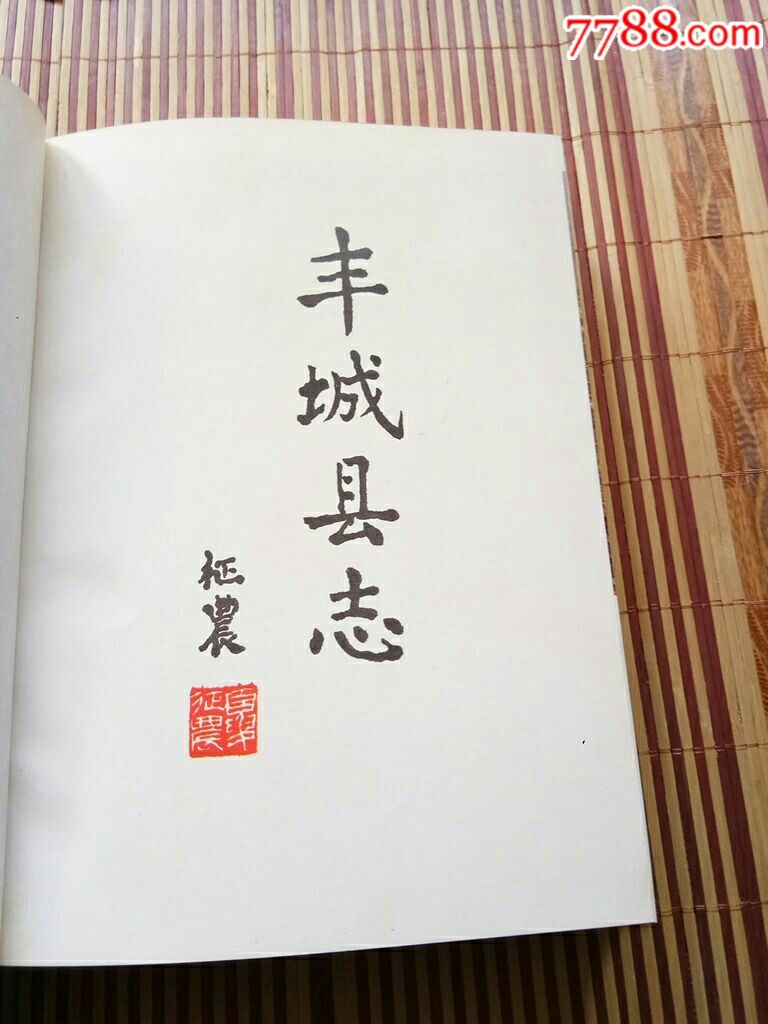 7788.com
丰城县志
征農